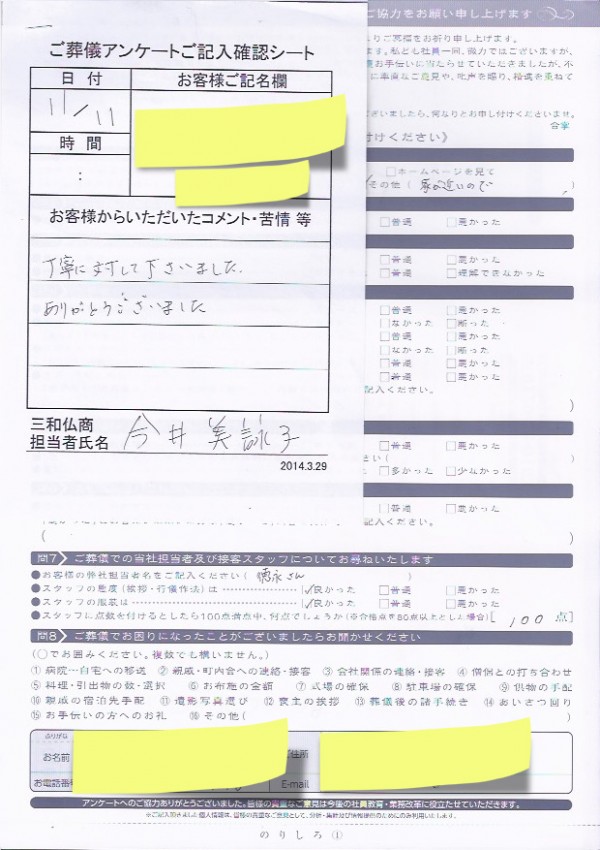 ご協力をお願い申し上げます
ご葬儀アンケートご記入確認シート
日 付
お客様ご記名欄
11/11
時 間
:
お客様からいただいたコメント・苦情 等
丁寧に対して下さいました.
ありがとうございました
三和仏商
担当者氏名 今井 美詠子
2014.3.29
よりご冥福をお祈り申し上げます。
ます。私ども社員一同、微力ではございますが、
お手伝いに当たらせていただきましたが、不
ざいましたら、何なりとお申し付けくださいませ。
合掌
付けください》
□ホームページを見て
その他( 家が近いので )
□普通 □悪かった
□普通 □悪かった
□普通 □理解できなかった
□普通 □悪かった
□なかった □断った
□普通 □悪かった
□なかった □断った
□普通 □悪かった
□普通 □悪かった
記入ください。
)
□普通 □悪かった
さい( )
□多かった □少なかった
□普通 □悪かった
記入ください。
( )
問7 ご葬儀での当社担当者及び接客スタッフについてお尋ねいたします
●お客様の弊社担当者名をご記入ください( 徳永さん )
●スタッフの態度(挨拶・行儀作法)は ✓良かった □普通 □悪かった
●スタッフの服装は ✓良かった □普通 □悪かった
●スタッフに点数を付けるとしたら100点満点中、何点でしょうか(※合格点を80点以上とした場合)[ 100 点]
問8 ご葬儀でお困りになったことがございましたらお聞かせください
(○でお囲みください。複数でも構いません。)
①病院…自宅への移送 ②親戚・町内会への連絡・接客 ③会社関係の連絡・接客 ④僧侶との打ち合わせ
⑤料理・引出物の数・選択 ⑥お布施の金額 ⑦式場の確保 ⑧駐車場の確保 ⑨供物の手配
⑩親戚の宿泊先手配 ⑪遺影写真選び ⑫喪主の挨拶 ⑬葬儀後の諸手続き ⑭あいさつ回り
⑮お手伝いの方へのお礼 ⑯その他( )
ふりがな
お名前
ご住所
お電話番号
E-mail
アンケートへのご協力ありがとうございました。皆様の貴重なご意見は今後の社員教育・業務改革に役立たせていただきます。
※ご記入頂きました個人情報は、皆様の貴重なご意見として、分析・集計及び情報提供のためにのみ利用いたします。
のりしろ①